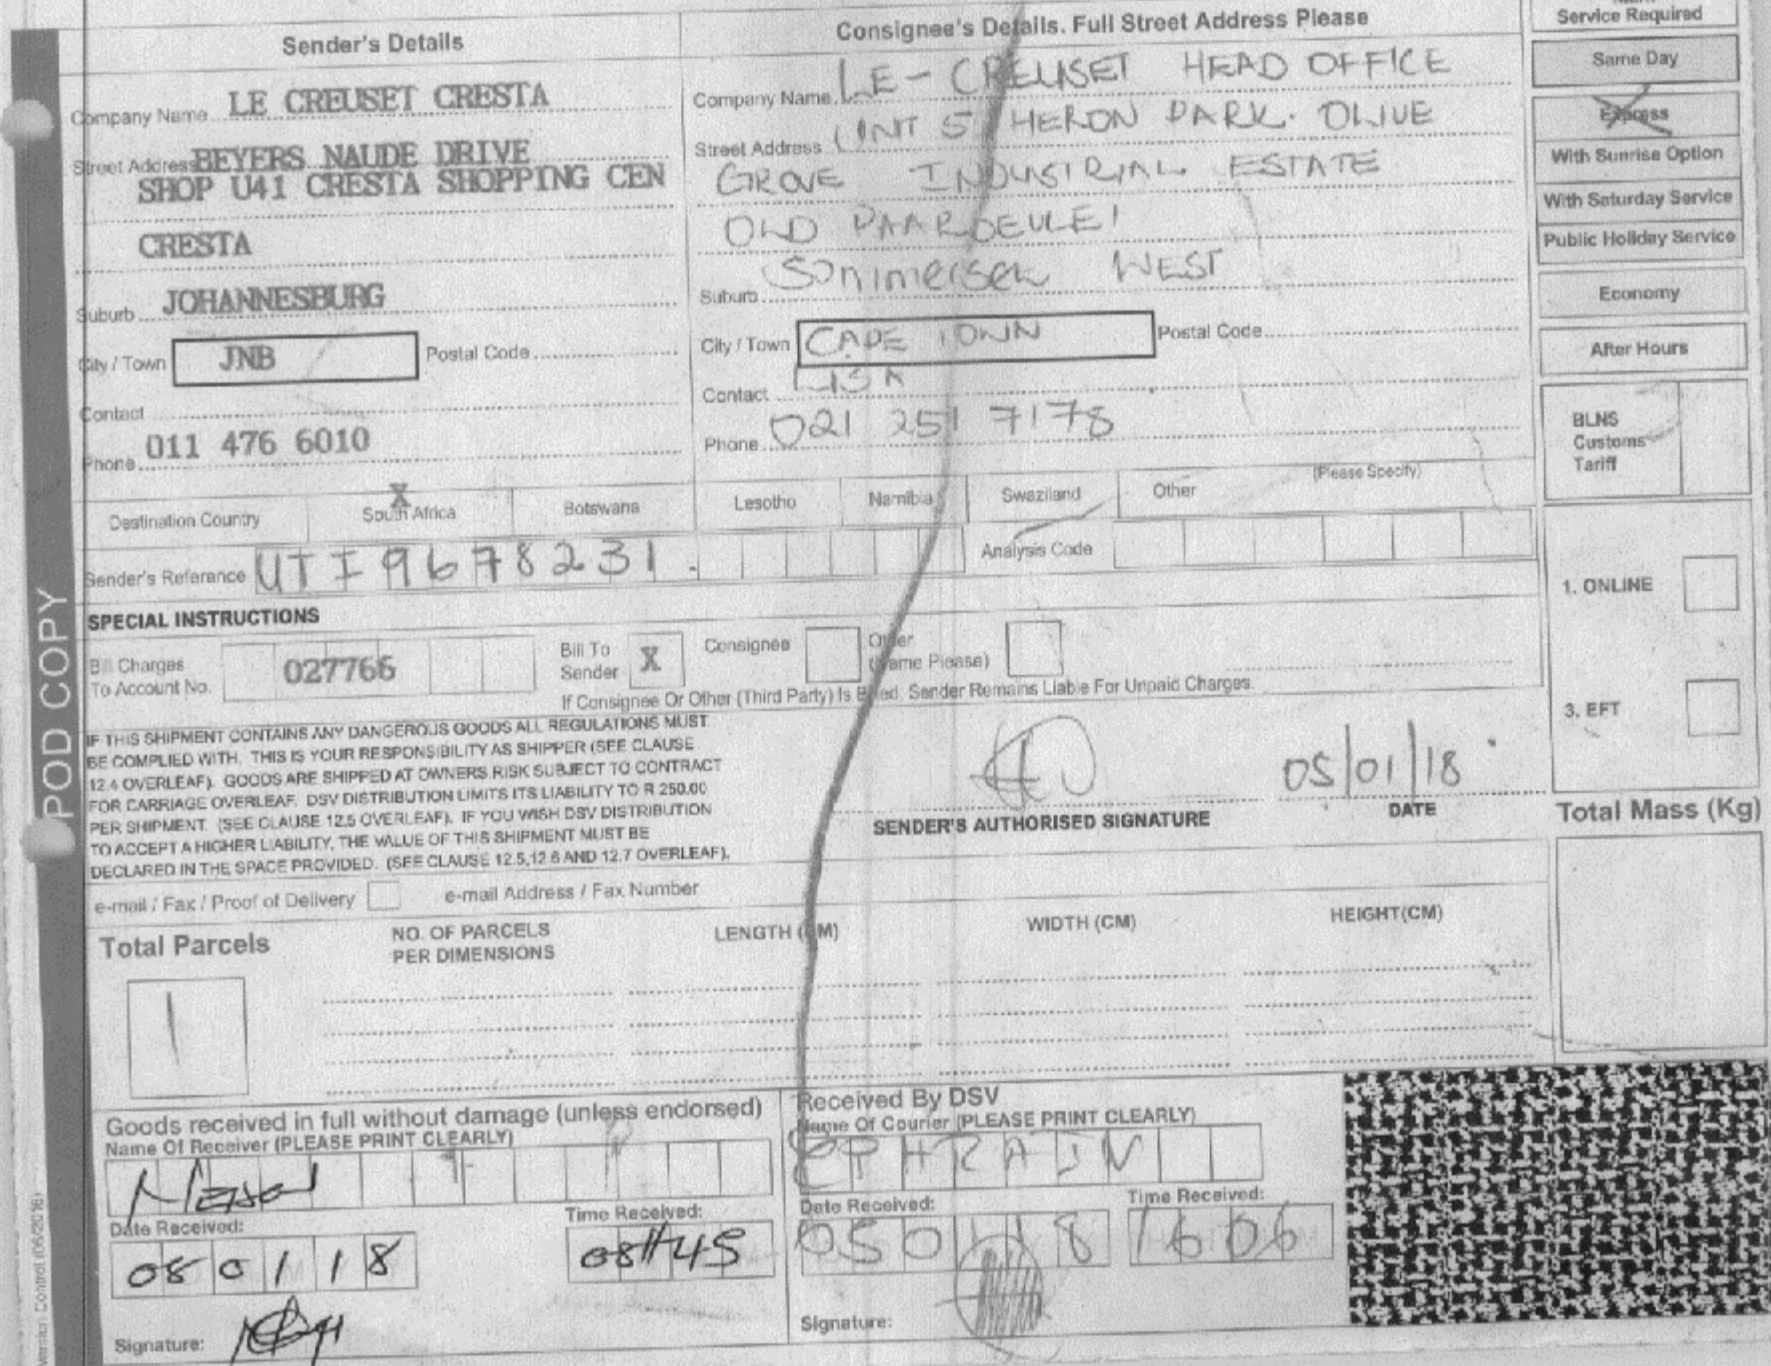 Sender's Details
Company Name LE CREUSET CRESTA
Street Address BEYERS NAUDE DRIVE
SHOP U41 CRESTA SHOPPING CEN
CRESTA
Suburb JOHANNESBURG
City / Town JNB Postal Code
Contact
Phone 011 476 6010
Consignee's Details. Full Street Address Please
Company Name LE - CREUSET HEAD OFFICE
Street Address UNIT 5 HERON PARK. OLIVE
GROVE INDUSTRIAL ESTATE
OLD PAARDEVLEI
Suburb WEST
City / Town CAPE TOWN Postal Code
Contact LISA
Phone 021 251 7178
Service Required
Same Day
Express
With Sunrise Option
With Saturday Service
Public Holiday Service
Economy
After Hours
BLNS
Customs
Tariff
Destination Country X South Africa Botswana Lesotho Namibia Swaziland Other (Please Specify)
Sender's Reference UTI9678231. Analysis Code
1. ONLINE
3. EFT
SPECIAL INSTRUCTIONS
Bill Charges
To Account No. 027766
Bill To
Sender X Consignee Other
(Name Please)
If Consignee Or Other (Third Party) Is Billed, Sender Remains Liable For Unpaid Charges.
IF THIS SHIPMENT CONTAINS ANY DANGEROUS GOODS ALL REGULATIONS MUST
BE COMPLIED WITH. THIS IS YOUR RESPONSIBILITY AS SHIPPER (SEE CLAUSE
12.4 OVERLEAF). GOODS ARE SHIPPED AT OWNERS RISK SUBJECT TO CONTRACT
FOR CARRIAGE OVERLEAF. DSV DISTRIBUTION LIMITS ITS LIABILITY TO R 250.00
PER SHIPMENT. (SEE CLAUSE 12.5 OVERLEAF). IF YOU WISH DSV DISTRIBUTION
TO ACCEPT A HIGHER LIABILITY, THE VALUE OF THIS SHIPMENT MUST BE
DECLARED IN THE SPACE PROVIDED. (SEE CLAUSE 12.5,12.6 AND 12.7 OVERLEAF).
SENDER'S AUTHORISED SIGNATURE
05/01/18
DATE
Total Mass (Kg)
e-mail / Fax / Proof of Delivery e-mail Address / Fax Number
Total Parcels
1
NO. OF PARCELS
PER DIMENSIONS
LENGTH (CM) WIDTH (CM) HEIGHT(CM)
Goods received in full without damage (unless endorsed)
Name Of Receiver (PLEASE PRINT CLEARLY)
Date Received: Time Received:
080118 08H45
Signature:
Received By DSV
Name Of Courier (PLEASE PRINT CLEARLY)
Date Received: Time Received:
050118 1606
Signature:
POD COPY
Version Control (06/2016)